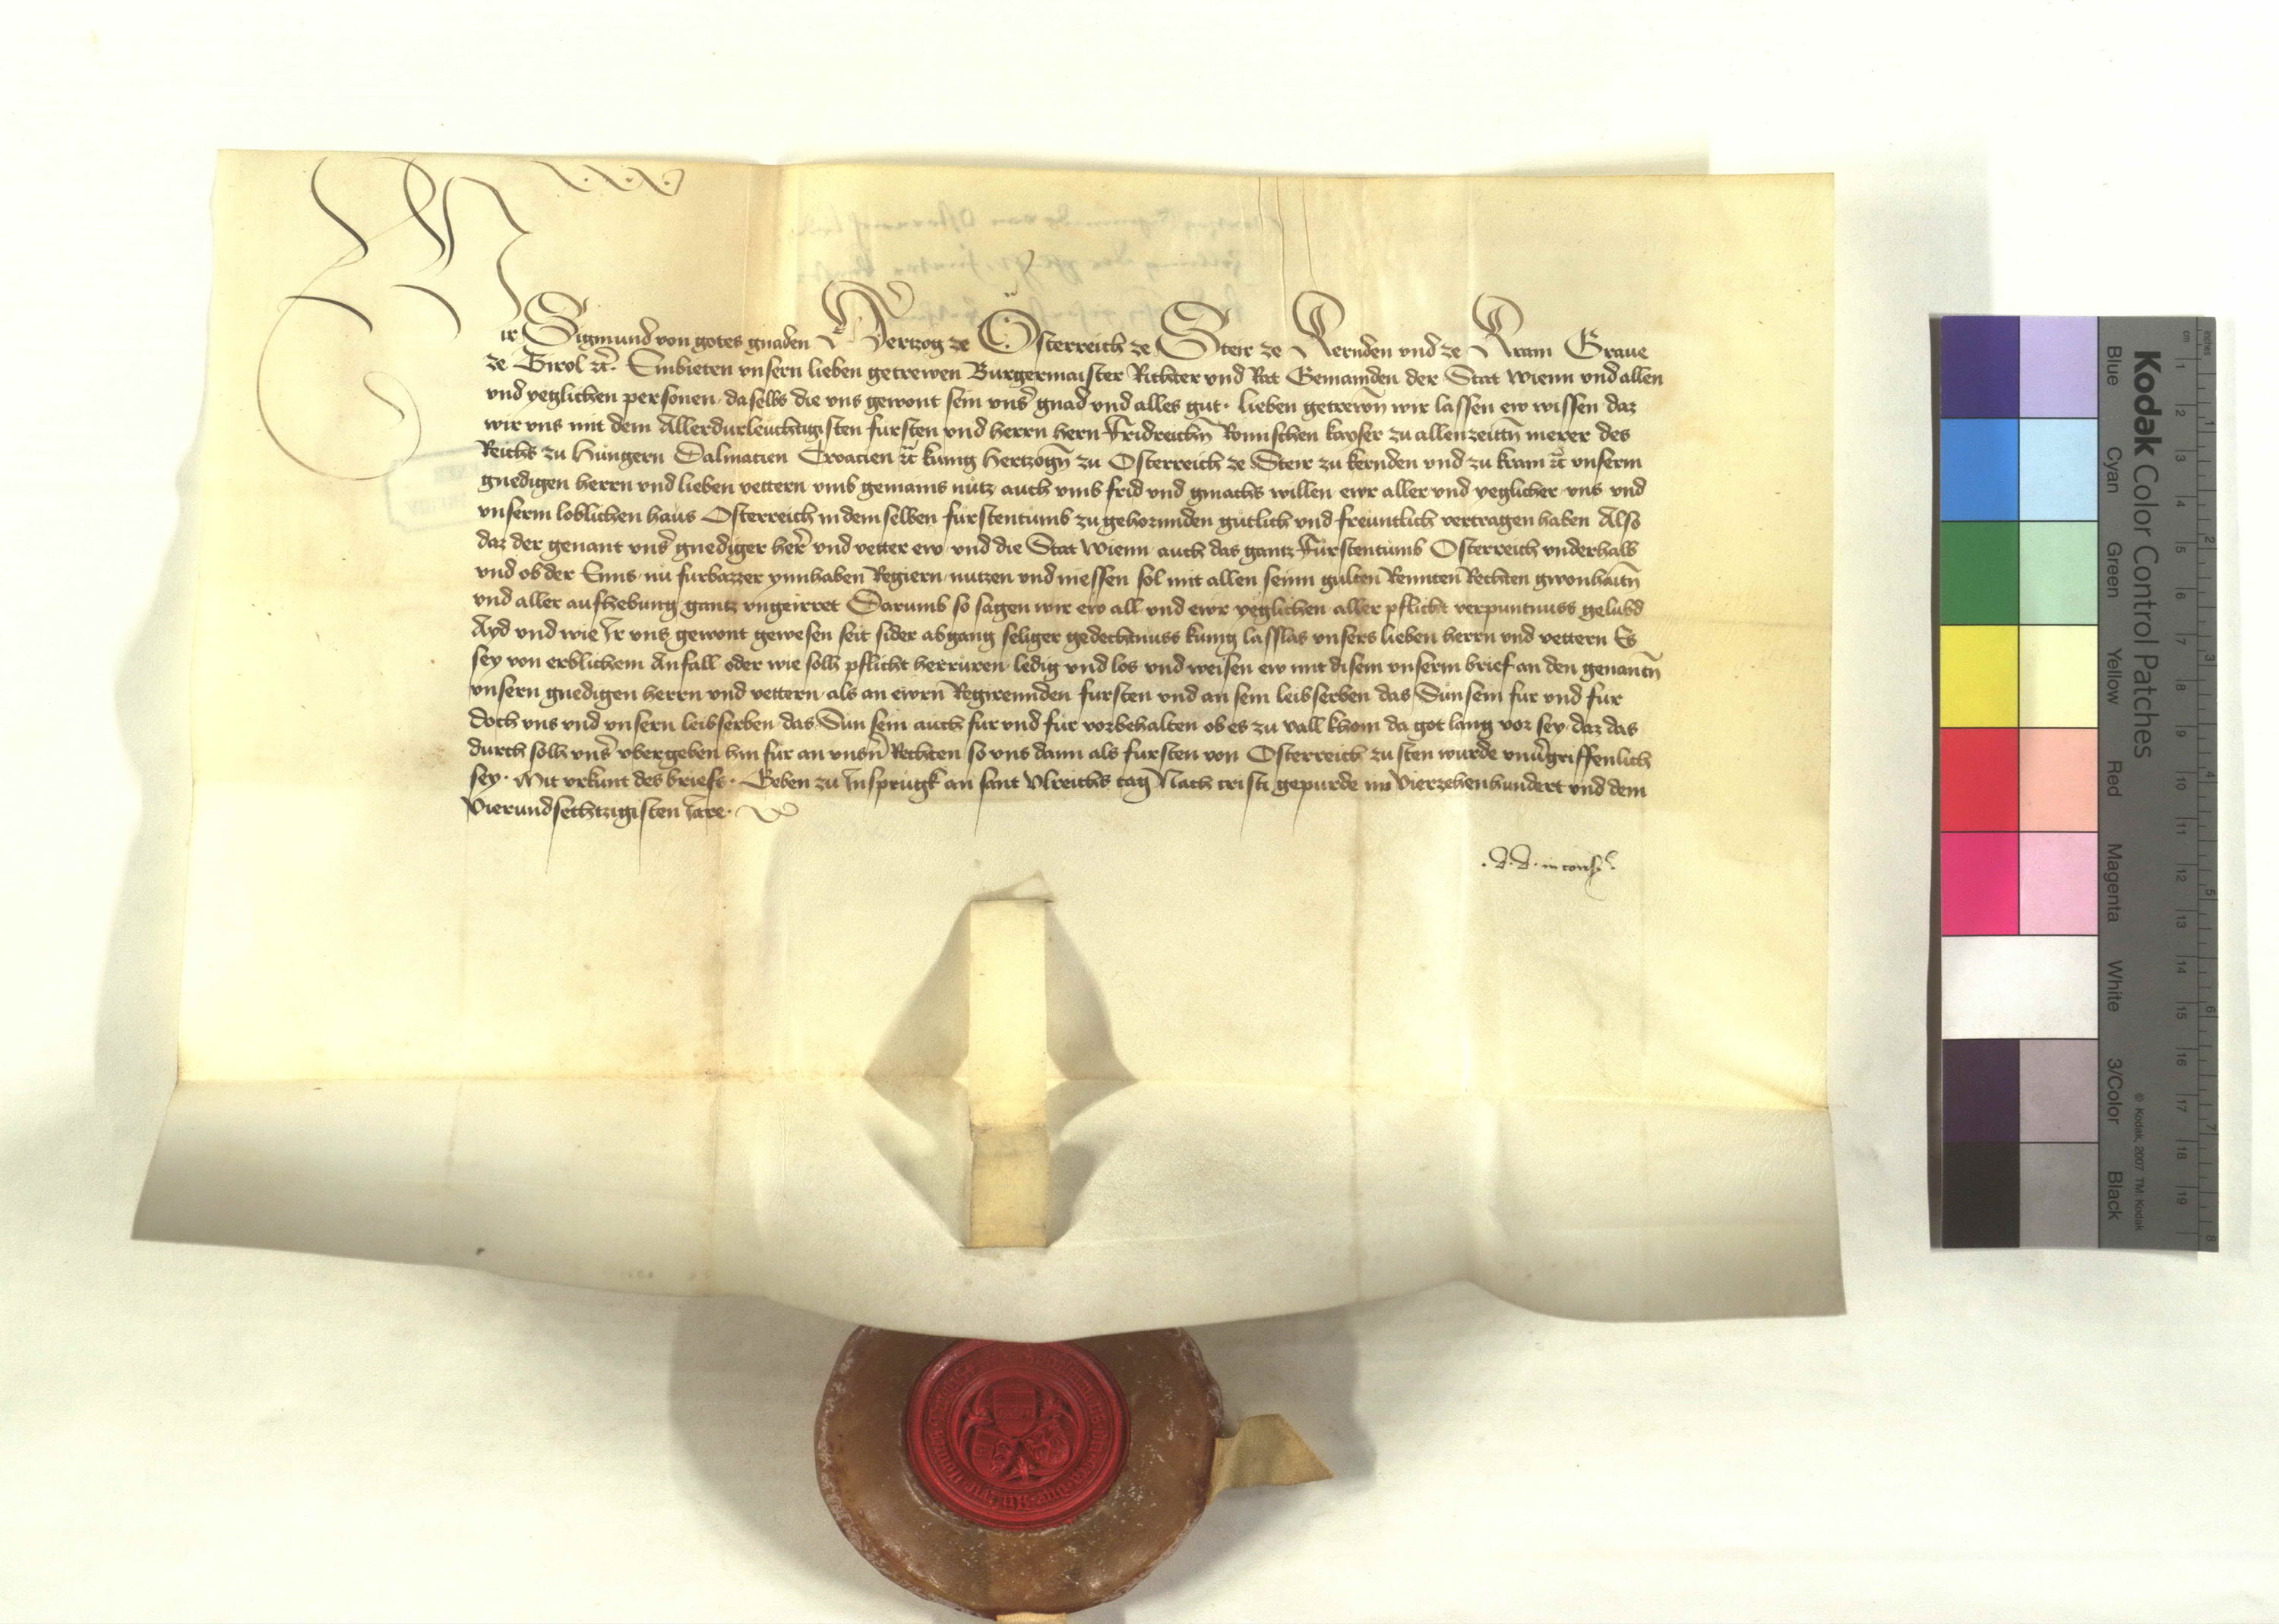 Wir Sigmund von gotes gnaden Hertzog ze Österreich ze Steir ze Kernden vnd ze Krain Graue
ze Tirol etc̃. Embieten vnsern lieben getrewen Burgermaister Richter vnd Rat Gemainden der Stat wienn vnd allen
vnd yeglichen personen daselbs die vns gewont sein vns̃ gnad vnd alles gut. lieben getrewñ wir lassen ew wissen daz
wir vns mit dem Allerdurleuchtigisten fursten vnd herrn hern Fridreichñ Romischen kayser zu allenzeittñ merer des
Reichs zu Hungern Dalmacien Croacien ꝛc̃ kunig Hertzogñ zu Osterreich ze Steir zu kernden vnd zu krain ꝛc̃ vnserm
gnedigen herrn vnd lieben vettern vmb gemains nutz auch vmb frid vnd gmachs willen ewr aller vnd yeglicher vns vnd
vnserm loblichen haus Osterreich in dem selben furstentumb zu gehorunden gutlich vnd freuntlich vertragen haben Also
daz der genant vns̃ gnediger her̃ vnd vetter ew vnd die Stat wienn auch das gantz Furstentumb Osterreich vnderhalb
vnd ob der Enns nu furbazzer ynnhaben Regiern nutzen vnd niessen sol mit allen seinn gulten Rennten Rechten gwonhaitñ
vnd aller aufhebung gantz vngeirret Darumb so sagen wir ew all vnd ewr yeglichen aller pflicht verpuntnuss gelubd
Ayd vnd wie Ir vns gewont gewesen seit sider abgang seliger gedechtnuss kunig lasslas vnsers lieben herrn vnd vettern Es
sey von erblichem Anfall oder wie solh pflicht herruren ledig vnd los vnd weisen ew mit disem vnserm brief an den genantñ
vnsern gnedigen herrn vnd vettern als an ewrñ Regirennden fursten vnd an sein leibserben das Sun sein fur vnd fur
doch vns vnd vnsern leibserben das Sun sein auch fur vnd fur vorbehalten ob es zu vall khom da got lang vor sey daz das
durch solh vns̃ vbergeben hin fur an vnsñ Rechten so vns dann als fursten von Osterreich zu sten wurde vnũgriffenlich
sey. Mit vrkunt des briefs. Geben zu Insprugk an sant Vlreichs tag Nach cristi gepurde im vierzehenhundert vnd dem
Vierundsechtzigisten Iare.
.d.d. in consilio.
Kodak Color Control Patches
© Kodak, 2007 TM: Kodak
Blue
Cyan
Green
Yellow
Red
Magenta
White
3/Color
Black
inches
1
2
3
4
5
6
7
8
cm
1
2
3
4
5
6
7
8
9
10
11
12
13
14
15
16
17
18
19